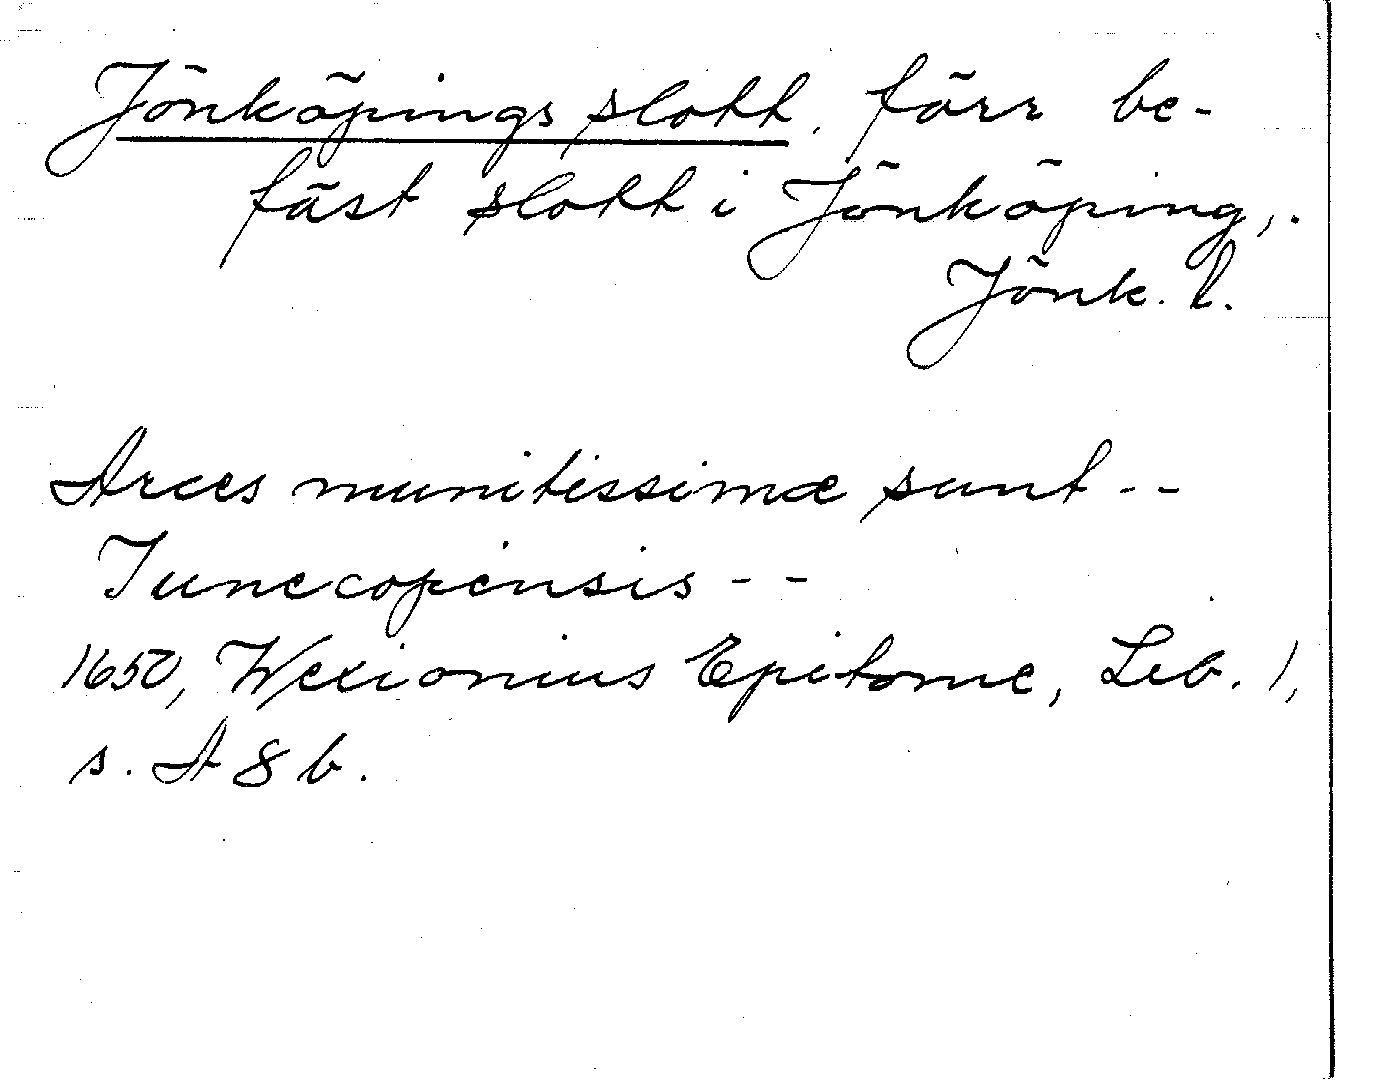 Jönköpings slott, förr be-
fäst slott i Jönköping,.
Jönk. l.
Arces munitissimæ sunt --
Junecopensis --
1650, Wexionius Epitome, Lib. 1,
s. A 8 b.